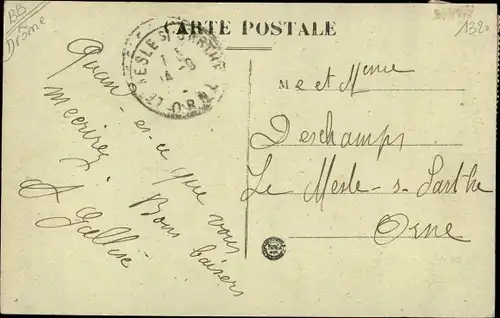 BB
Drôme
CARTE POSTALE
1320
LE MESLE S. SARTHE
ORNE
Quan est-ce que vous
mecrirez Bons baisers
A
M e et Meme
Deschamps
Le Mesle-s-Sarthe
Orne